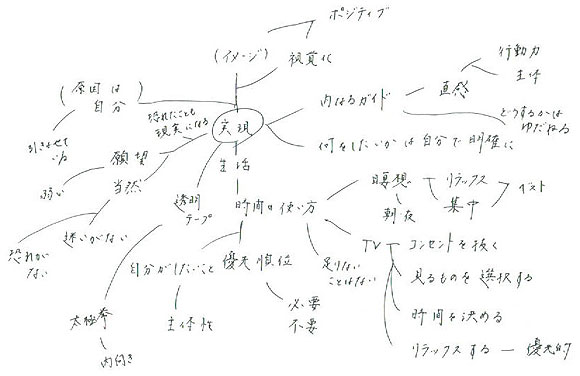 ポジティブ
(イメージ)
視覚化
行動力
主体
直感
内なるガイド
どうするかは
ゆだねる
(原因は
自分)
恐れたことも
現実になる
実現
引きよせて
いる
何をしたいかは自分で明確に
願望
当然
弱い
生活
透明
テープ
時間の使い方
瞑想
リラックス
集中
ベスト
朝・夜
恐れが
ない
迷いがない
TV
コンセントを抜く
自分がしたいこと
優先順位
足りない
ことはない
見るものを選択する
太極拳
主体性
必要
不要
時間を決める
内向き
リラックスする
優先的